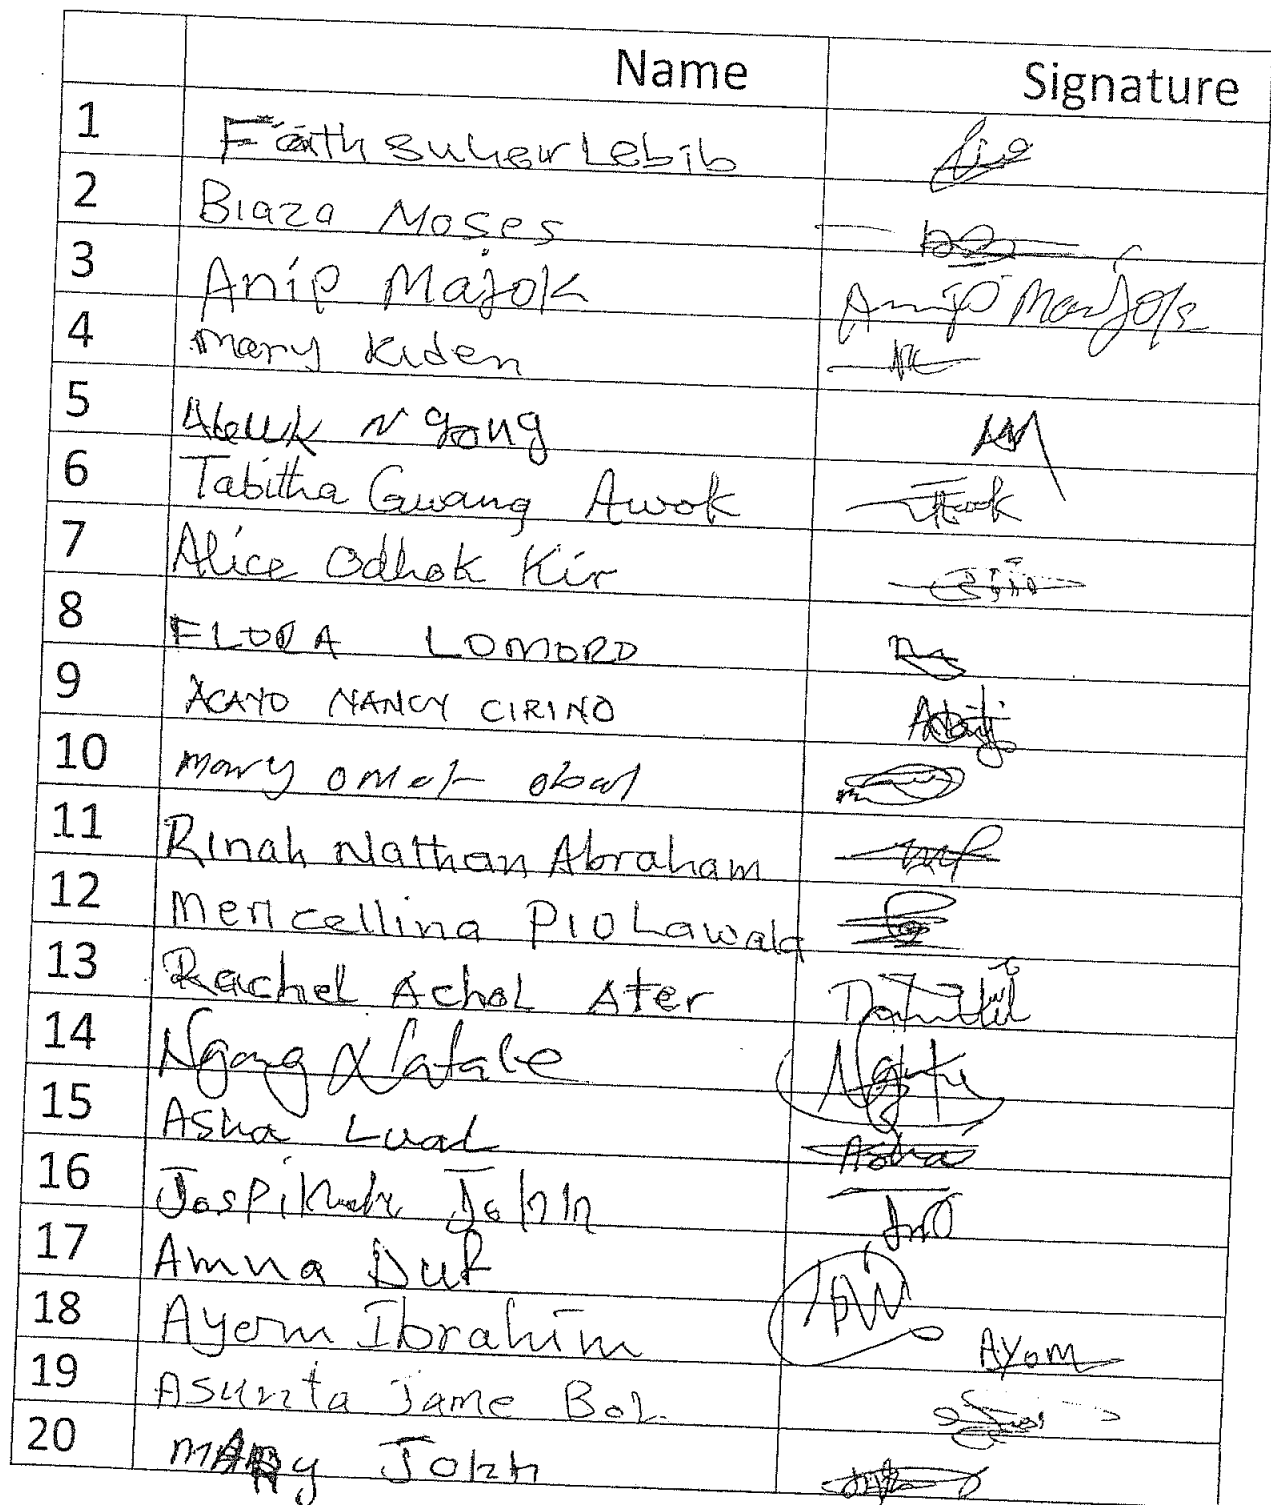 Name Signature
1 Faith Suher Lebib
2 Biaza Moses
3 Anip Majok Anip Majok
4 Mary Kiden
5 Abuk Ngong
6 Tabitha Gwang Awok Awok
7 Alice Odhok Kir
8 FLORA LOMORO
9 ACAYO NANCY CIRINO
10 Mary obal
11 Rinah Nathan Abraham
12 Mericellina Pio Lawala
13 Rachel Achol Ater
14 Ngong Natale
15 Asha Lual Asha
16 John
17 Amna Dut
18 Ayom Ibrahim Ayom
19 Asunta Jame Bol
20 MARY John